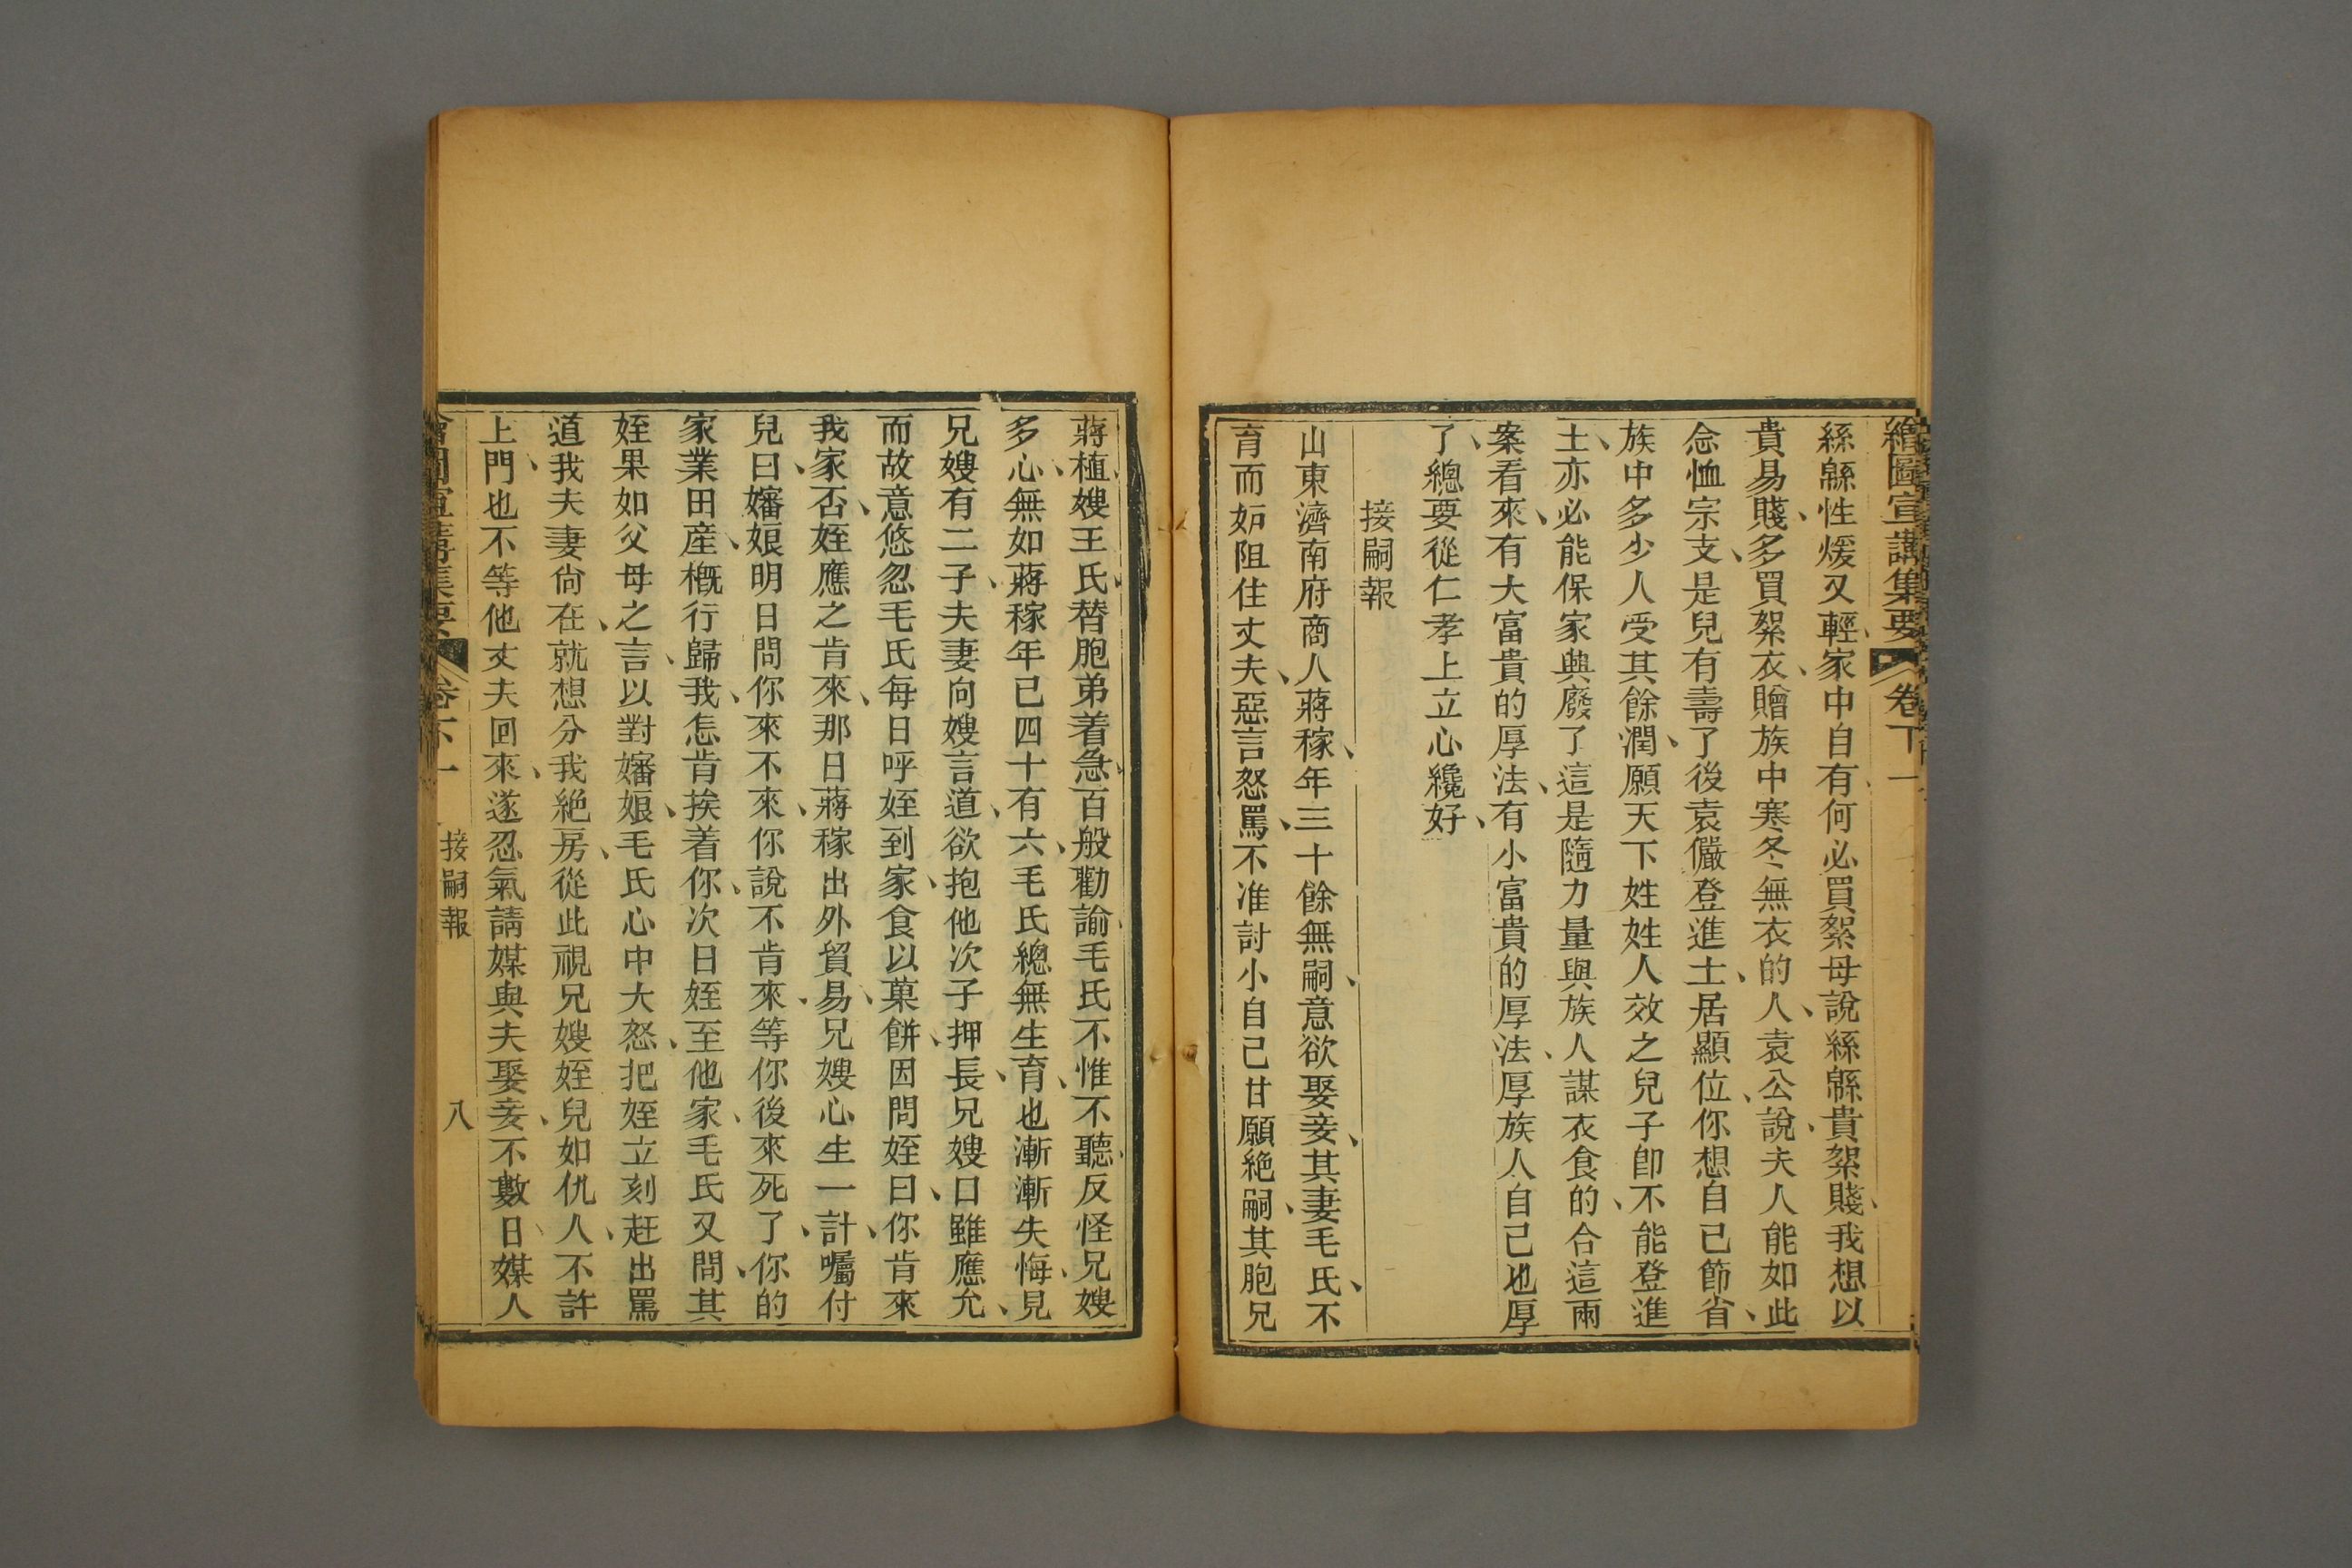 繪圖宣講集要 卷下一
絲緜性煖又輕家中自有何必買絮母說絲緜貴絮賤我想以
貴易賤多買絮衣贈族中寒冬無衣的人袁公說夫人能如此
念恤宗支是兒有壽了後袁儼登進士居顯位你想自已節省
族中多少人受其餘潤願天下姓姓人效之兒子卽不能登進
士亦必能保家與廢了這是隨力量與族人謀衣食的合這兩
案看來有大富貴的厚法有小富貴的厚法厚族人自己也厚
了總要從仁孝上立心纔好
接嗣報
山東濟南府商人蔣稼年三十餘無嗣意欲娶妾其妻毛氏不
育而妬阻住丈夫惡言怒罵不准討小自己甘願絕嗣其胞兄
蔣植嫂王氏替胞弟着急百般勸諭毛氏不惟不聽反怪兄嫂
多心無如蔣稼年已四十有六毛氏總無生育也漸漸失悔見
兄嫂有二子夫妻向嫂言道欲抱他次子押長兄嫂口雖應允
而故意悠忽毛氏每日呼姪到家食以菓餅因問姪曰你肯來
我家否姪應之肯來那日蔣稼出外貿易兄嫂心生一計囑付
兒曰嬸娘明日問你來不來你說不肯來等你後來死了你的
家業田産槪行歸我怎肯挨着你次日姪至他家毛氏又問其
姪果如父母之言以對嬸娘毛氏心中大怒把姪立刻赶出罵
道我夫妻尙在就想分我絕房從此視兄嫂姪兒如仇人不許
上門也不等他丈夫回來遂忍氣請媒與夫娶妾不數日媒人
繪圖宣講集要 卷下一 接嗣報 八